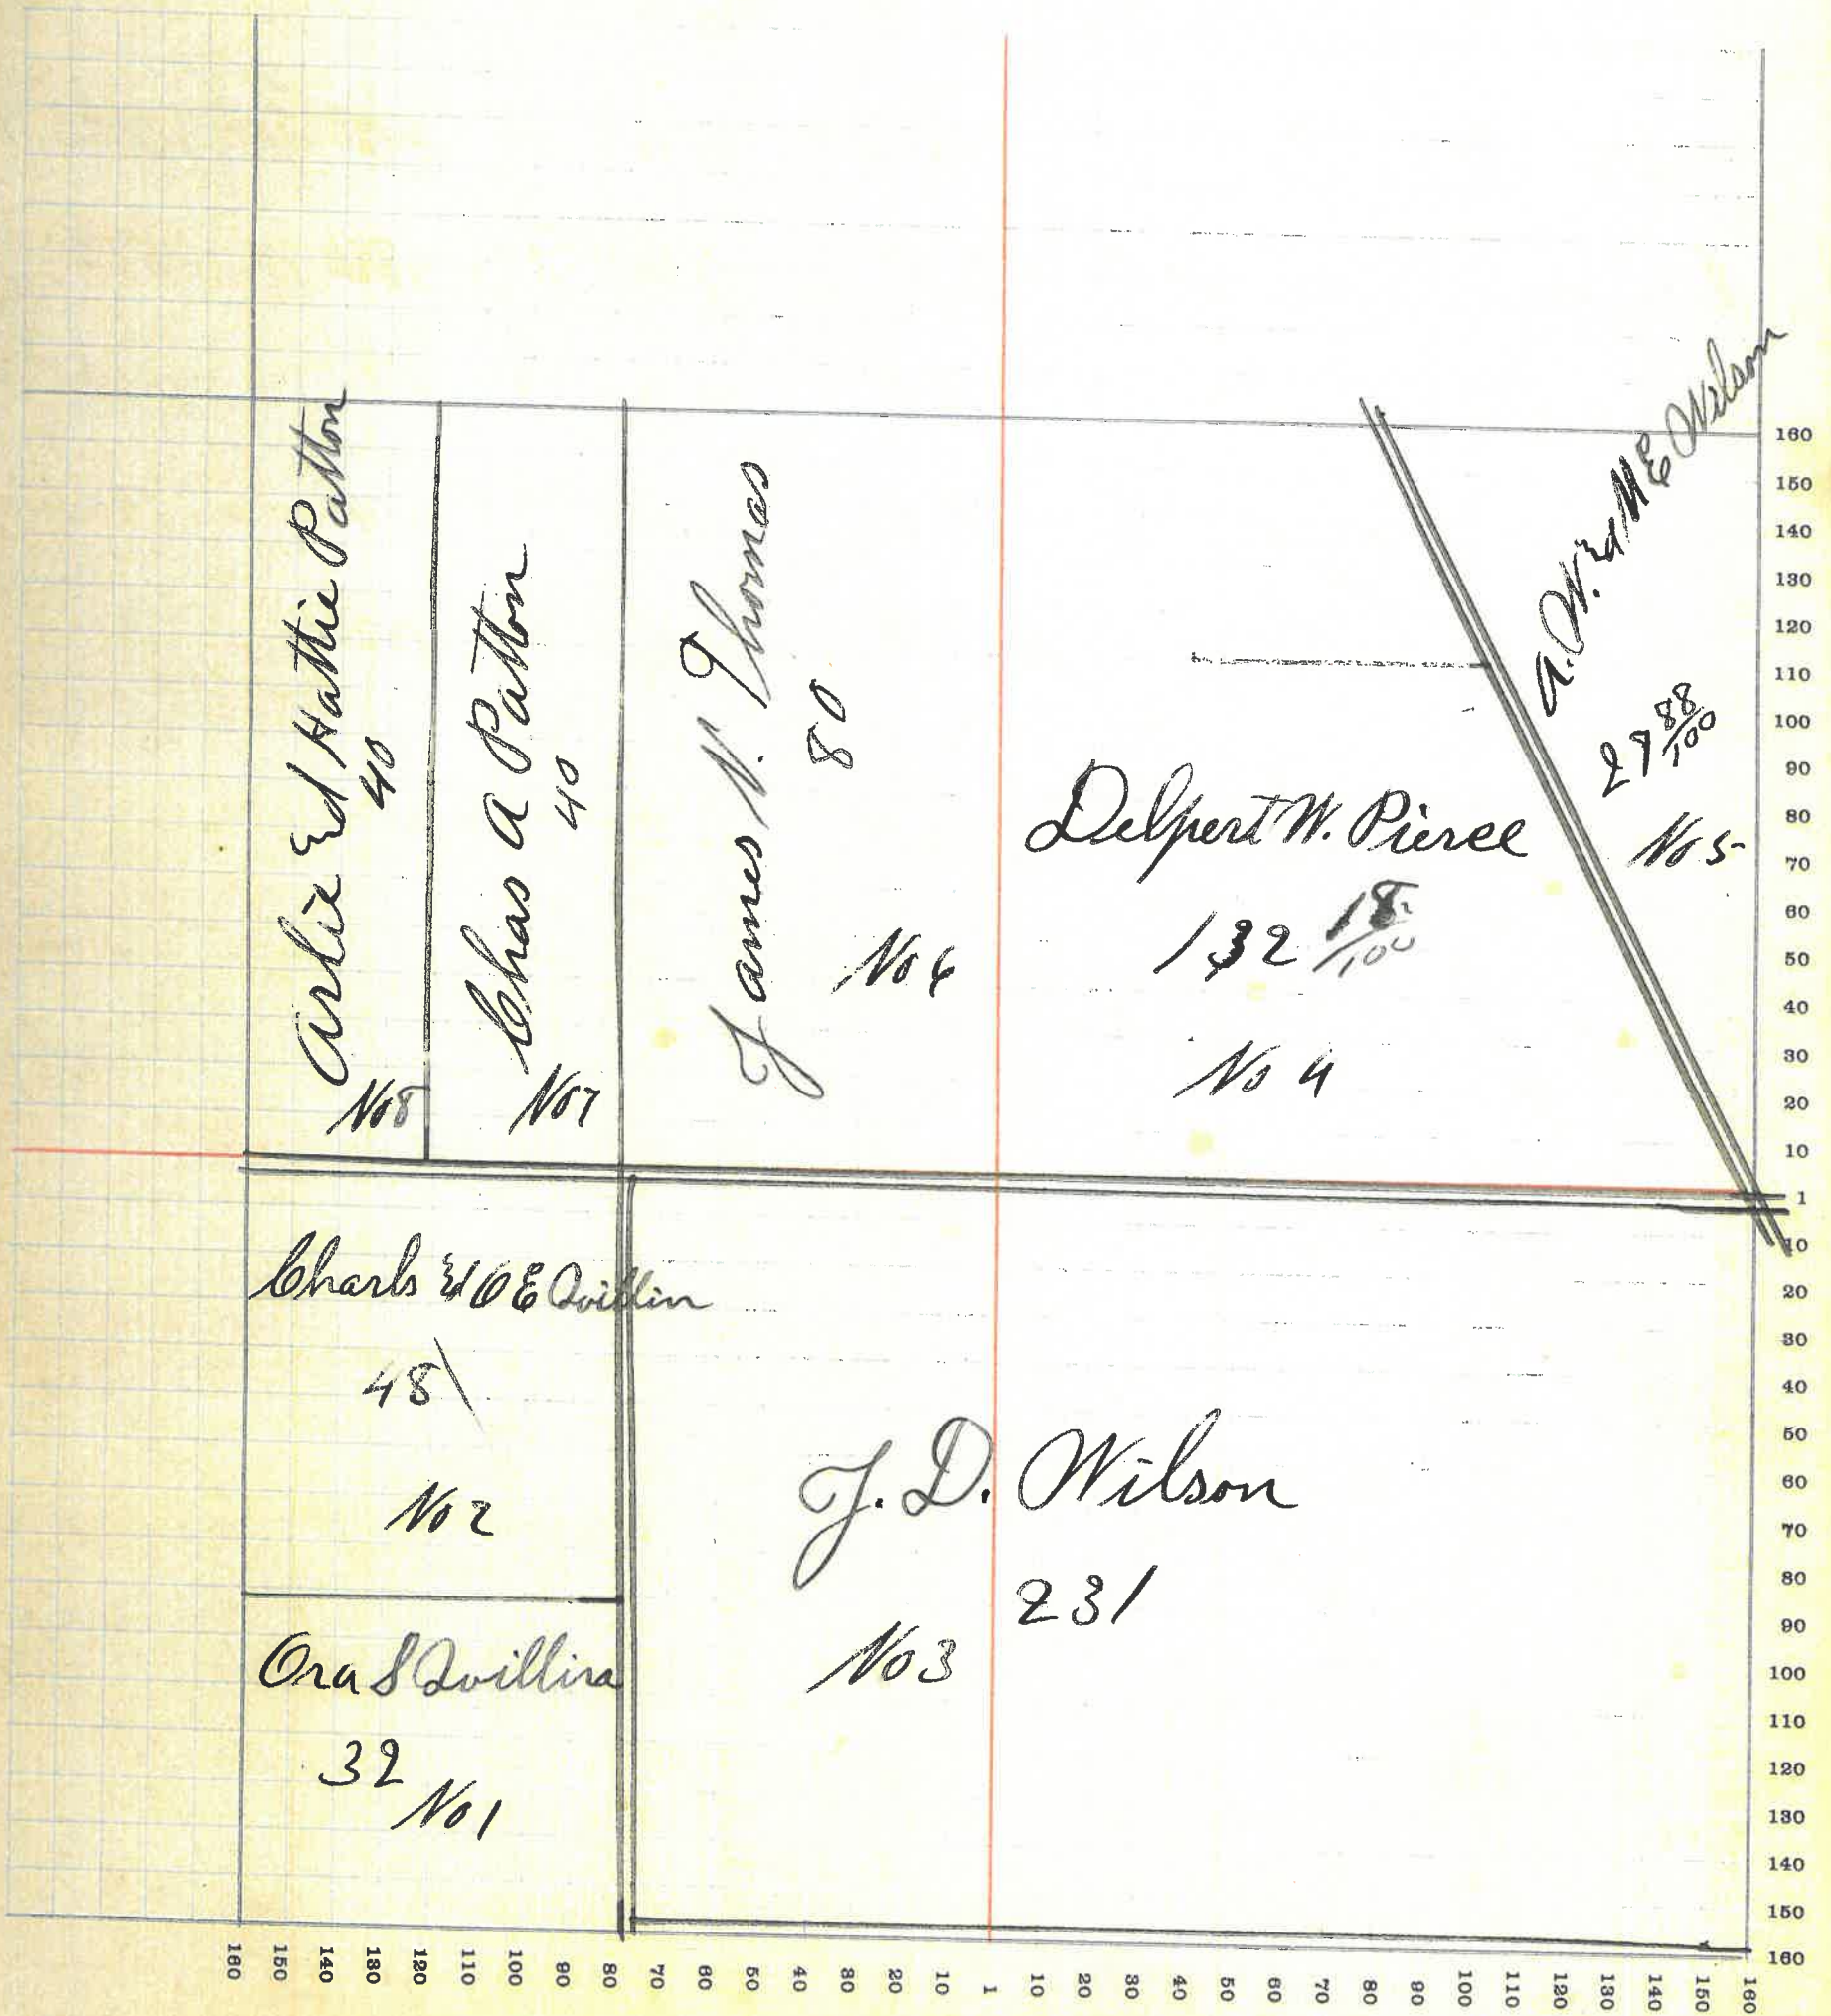 Arlie &d Hattie Patton
40
No 8
Chas A Patton
40
No 7
James N. Thomas
80
No 6
Delpert W. Pierce
132 18/100
No 4
A. W. &d M E Wilson
27 88/100
No 5
Charls &d O E Quillin
48
No 2
Ora S Quillin
32
No 1
J. D. Wilson
231
No 3
160
150
140
130
120
110
100
90
80
70
60
50
40
30
20
10
1
10
20
30
40
50
60
70
80
90
100
110
120
130
140
150
160
160 150 140 130 120 110 100 90 80 70 60 50 40 30 20 10 1 10 20 30 40 50 60 70 80 90 100 110 120 130 140 150 160